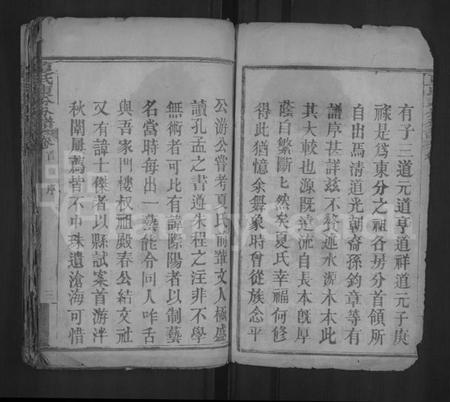 有子三道元道亨道祥道元子庚
祿是為東分之祖各房分首領所
自出馬清道光朝裔孫鈞章等有
譜序甚詳茲不贅述水源木本此
其大較也源既遠流自長本既厚
蔭自繁斷斷然矣夏氏幸福何修
得此猶憶余舞象時會從族念平
公游公嘗考夏氏前輩文人極盛
讀孔孟之書遵朱程之注非不學
無術者可比有諱際陽者以制藝
名當時每出一藝能令同人咋舌
與吾家門樓权祖殿春公結文社
又有諱士傑者以縣試案首游泮
秋闈屢薦皆不中珠遺滄海可惜
卷首
序
三